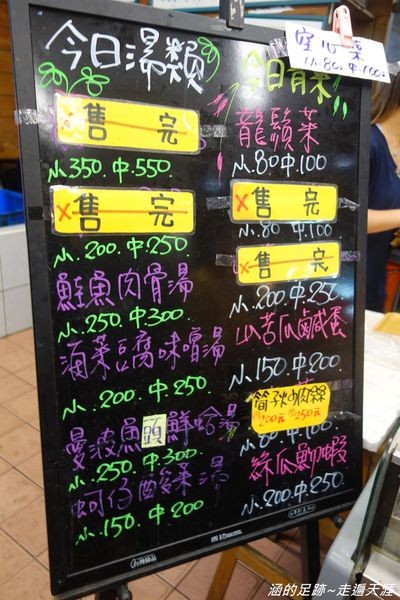 今日湯類
售完
小.350.中.550.
售完
小.200.中250
鮭魚肉骨湯
小.250.中300.
海菜豆腐味噌湯
小.200中250
曼波魚頭鮮蛤湯
小.250.中300
蚵仔酸菜湯
小.150.中200
空心菜
小.80.中.100.
今日青菜
龍鬚菜
小.80中.100
售完
小.80中.100
售完
小.200.中.250.
山苦瓜鹹蛋
小.150.中200
筍子炒肉絲
小200元中250元
小.80中.100
絲瓜蝦
小.200中.250.
涵的足跡~走遍天涯